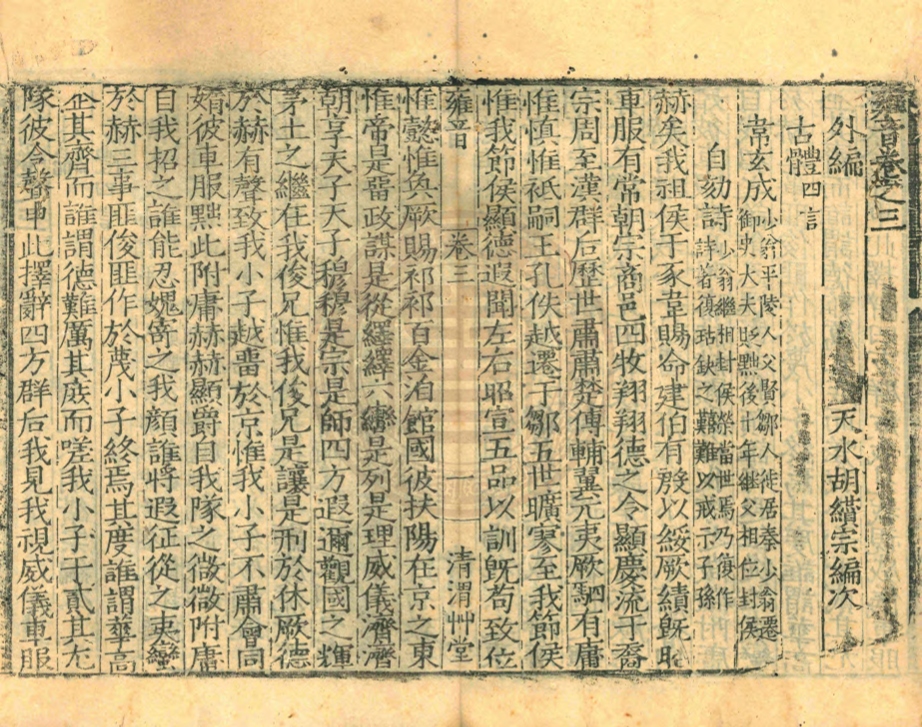 雍音卷之三
外編　天水胡纘宗編次
古體四言
韋玄成少翁平陵人父賢鄒人徙居奉少翁遷
御史大夫貶黜後十年繼父相位封侯
自劾詩少翁繼相封侯榮當世焉乃復作
詩著復玷缺之艱難以戒示子孫
赫矣我祖侯于豕韋賜命建伯有殷以綏厥績既昭
車服有常朝宗商邑四牧翔翔德之令顯慶流于裔
宗周至漢群后歷世肅肅楚傅輔翼元夷厥駟有庸
惟慎惟祗嗣王孔佚越遷于鄒五世曠寥至我節侯
惟我節侯顯德遐聞左右昭宣五品以訓既苟致位
雍音　卷三　一　清渭艸堂
惟懿惟奐厥賜祁祁百金洎館國彼扶陽在京之東
惟帝是畱政謀是從繹繹六轡是列是理威儀濟濟
朝享天子天子穆穆是宗是師四方遐邇觀國之輝
茅土之繼在我俊兄惟我俊兄是讓是刑於休厥德
於赫有聲致我小子越畱於京惟我小子不肅會同
媠彼車服黜此附庸赫赫顯爵自我隊之微微附庸
自我招之誰能忍媿寄之我顏誰將遐征從之夷蠻
於赫三事匪俊匪作於茂小子終焉其度誰謂華高
企其齊而誰謂德難厲其庶而嗟我小子于貳其尤
隊彼令聲申此擇辭四方群后我見我視威儀車服